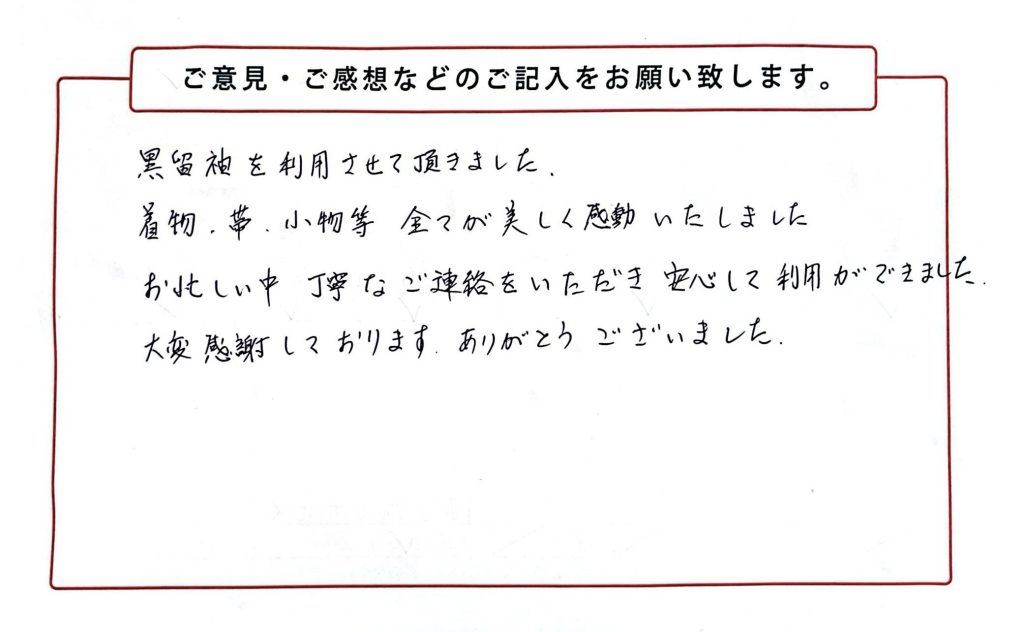 ご意見・ご感想などのご記入をお願い致します。
黒留袖を利用させて頂きました.
着物.帯.小物等 全てが美しく感動いたしました
お忙しい中 丁寧なご連絡をいただき 安心して利用ができました.
大変感謝しております.ありがとうございました.